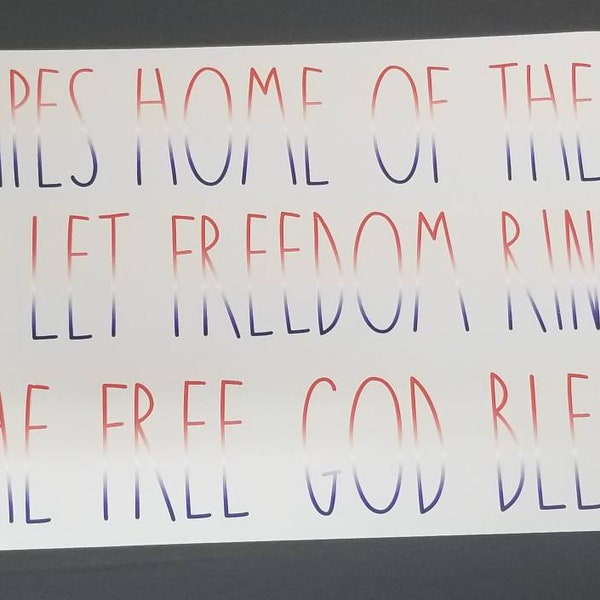 IPES HOME OF THE
LET FREEDOM RIN
ME FREE GOD BLE